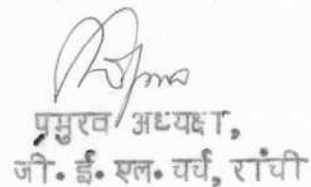 प्रमुख अध्यक्ष,
जी. ई. एल. चर्च, रांची